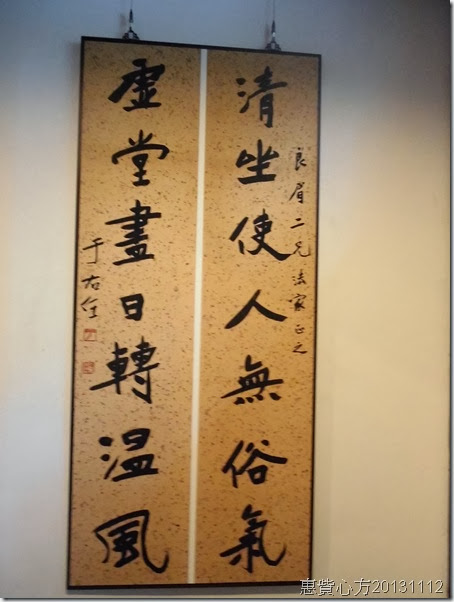 良眉二兄法家正之
清坐使人無俗氣
虛堂盡日轉温風
于右任
惠貲心方20131112